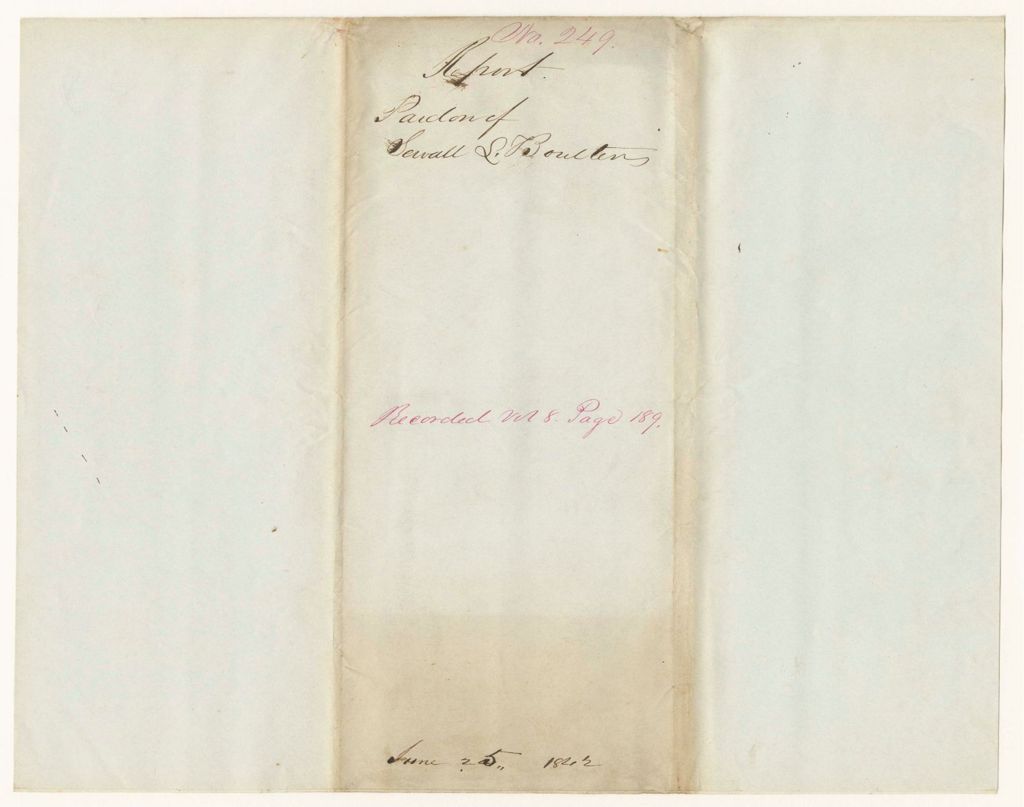 No. 249.
Report.
Pardon of
Sewall L. Boulters
Recorded Vol 8. Page 189.
June 25,, 1842